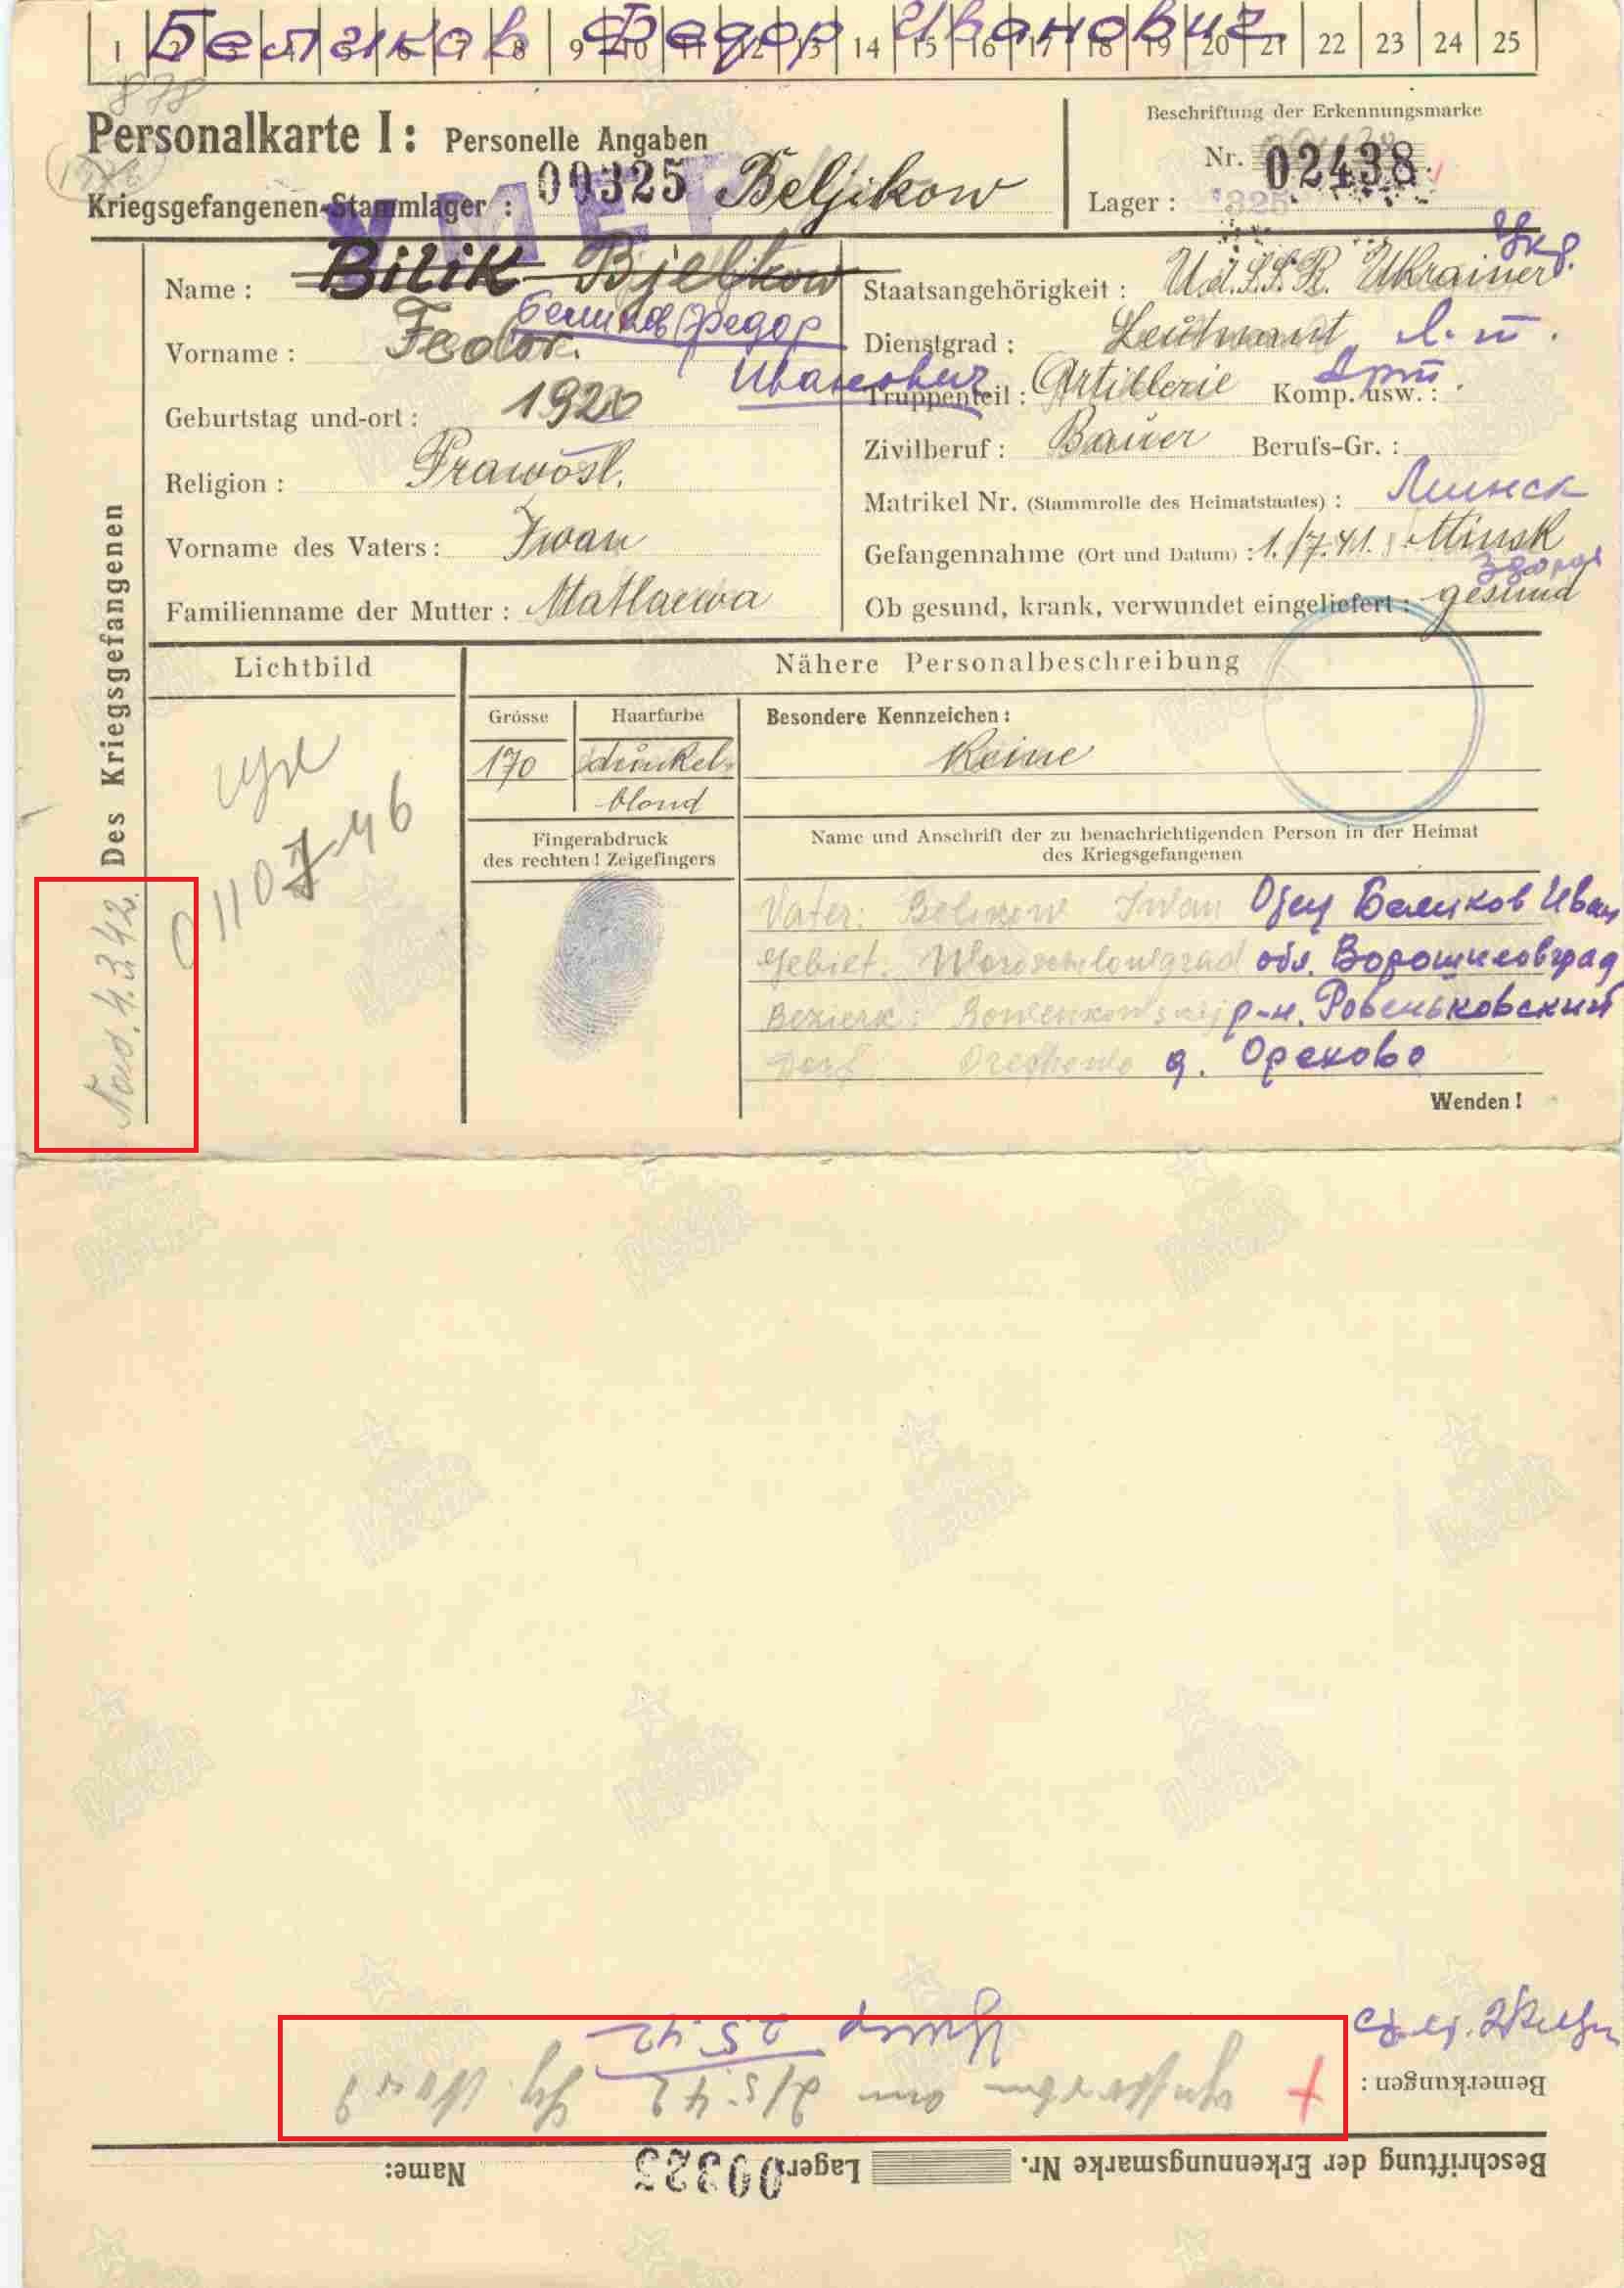 Беликов Федор Иванович
1 2 3 4 5 6 7 8 9 10 11 12 13 14 15 16 17 18 19 20 21 22 23 24 25
878
Personalkarte I: Personelle Angaben
Beschriftung der Erkennungsmarke
Nr. 02438
Kriegsgefangenen-Stammlager : 00325 Beljikow
Lager : 325
УМЕР
Name : Bilik Bjelikow
Беликов Федор
Иванович
Vorname : Feodor.
Geburtstag und-ort : 1920
Religion : Prawosl.
Vorname des Vaters : Iwan
Familienname der Mutter :
Укр.
Staatsangehörigkeit : U.d.S.S.R. Ukrainer
Dienstgrad : Leutnant л-т.
Truppenteil : Artillerie Komp. usw. : Арт.
Zivilberuf : Bauer Berufs-Gr. :
Matrikel Nr. (Stammrolle des Heimatstaates) :
Минск
Gefangennahme (Ort und Datum) : 1./7.41. Minsk
здоров
Ob gesund, krank, verwundet eingeliefert : gesund
Des Kriegsgefangenen
4.3.42.
Lichtbild
1107-46
Nähere Personalbeschreibung
Grösse
170
Haarfarbe
dunkel-
blond
Besondere Kennzeichen :
Keine
Fingerabdruck
des rechten ! Zeigefingers
Name und Anschrift der zu benachrichtigenden Person in der Heimat
des Kriegsgefangenen
Vater: Belikow Iwan Отец Беликов Иван
Gebiet: Woroschilowgrad обл. Ворошиловград
Bezierk: Rowenkowskij р-н. Ровеньковский
Dorf Orechowo д. Орехово
Wenden !
Name: Lager: 00325 Beschriftung der Erkennungsmarke Nr.
Bemerkungen : + Gestorben am 2/5.42
Умер 2.5.42